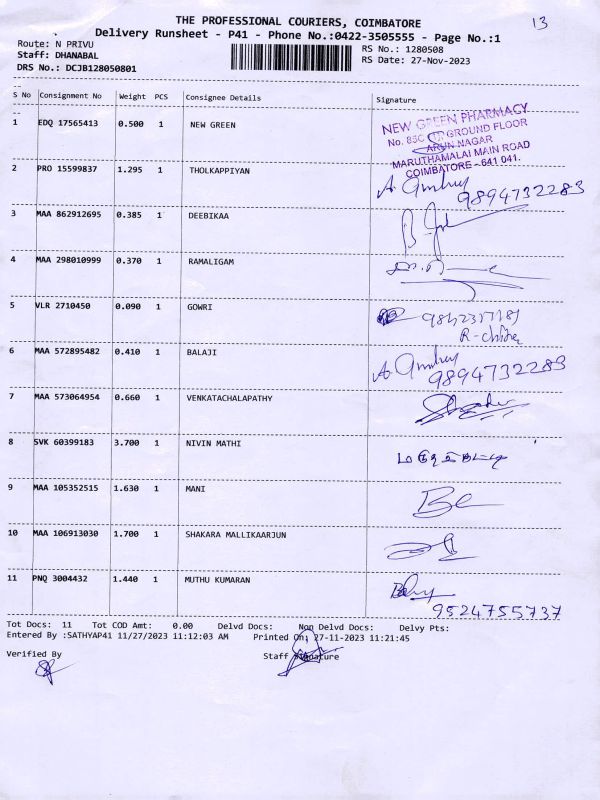 THE PROFESSIONAL COURIERS, COIMBATORE
13
Delivery Runsheet - P41 - Phone No.:0422-3505555 - Page No.:1
Route: N PRIVU
RS No.: 1280508
Staff: DHANABAL
RS Date: 27-Nov-2023
DRS No.: DCJB128050801
S No Consignment No Weight PCS Consignee Details Signature
1 EDQ 17565413 0.500 1 NEW GREEN
NEW GREEN PHARMACY
No. 85C GROUND FLOOR
ARUN NAGAR
MARUTHAMALAI MAIN ROAD
COIMBATORE - 641 041.
2 PRO 15599837 1.295 1 THOLKAPPIYAN
9894732283
3 MAA 862912695 0.385 1 DEEBIKAA
4 MAA 298010999 0.370 1 RAMALIGAM
5 VLR 2710450 0.090 1 GOWRI
6 MAA 572895482 0.410 1 BALAJI
9894732283
7 MAA 573064954 0.660 1 VENKATACHALAPATHY
8 SVK 60399183 3.700 1 NIVIN MATHI
9 MAA 105352515 1.630 1 MANI
10 MAA 106913030 1.700 1 SHAKARA MALLIKAARJUN
11 PNQ 3004432 1.440 1 MUTHU KUMARAN
9524755737
Tot Docs: 11 Tot COD Amt: 0.00 Delvd Docs: Non Delvd Docs: Delvy Pts:
Entered By :SATHYAP41 11/27/2023 11:12:03 AM Printed On: 27-11-2023 11:21:45
Verified By Staff Signature